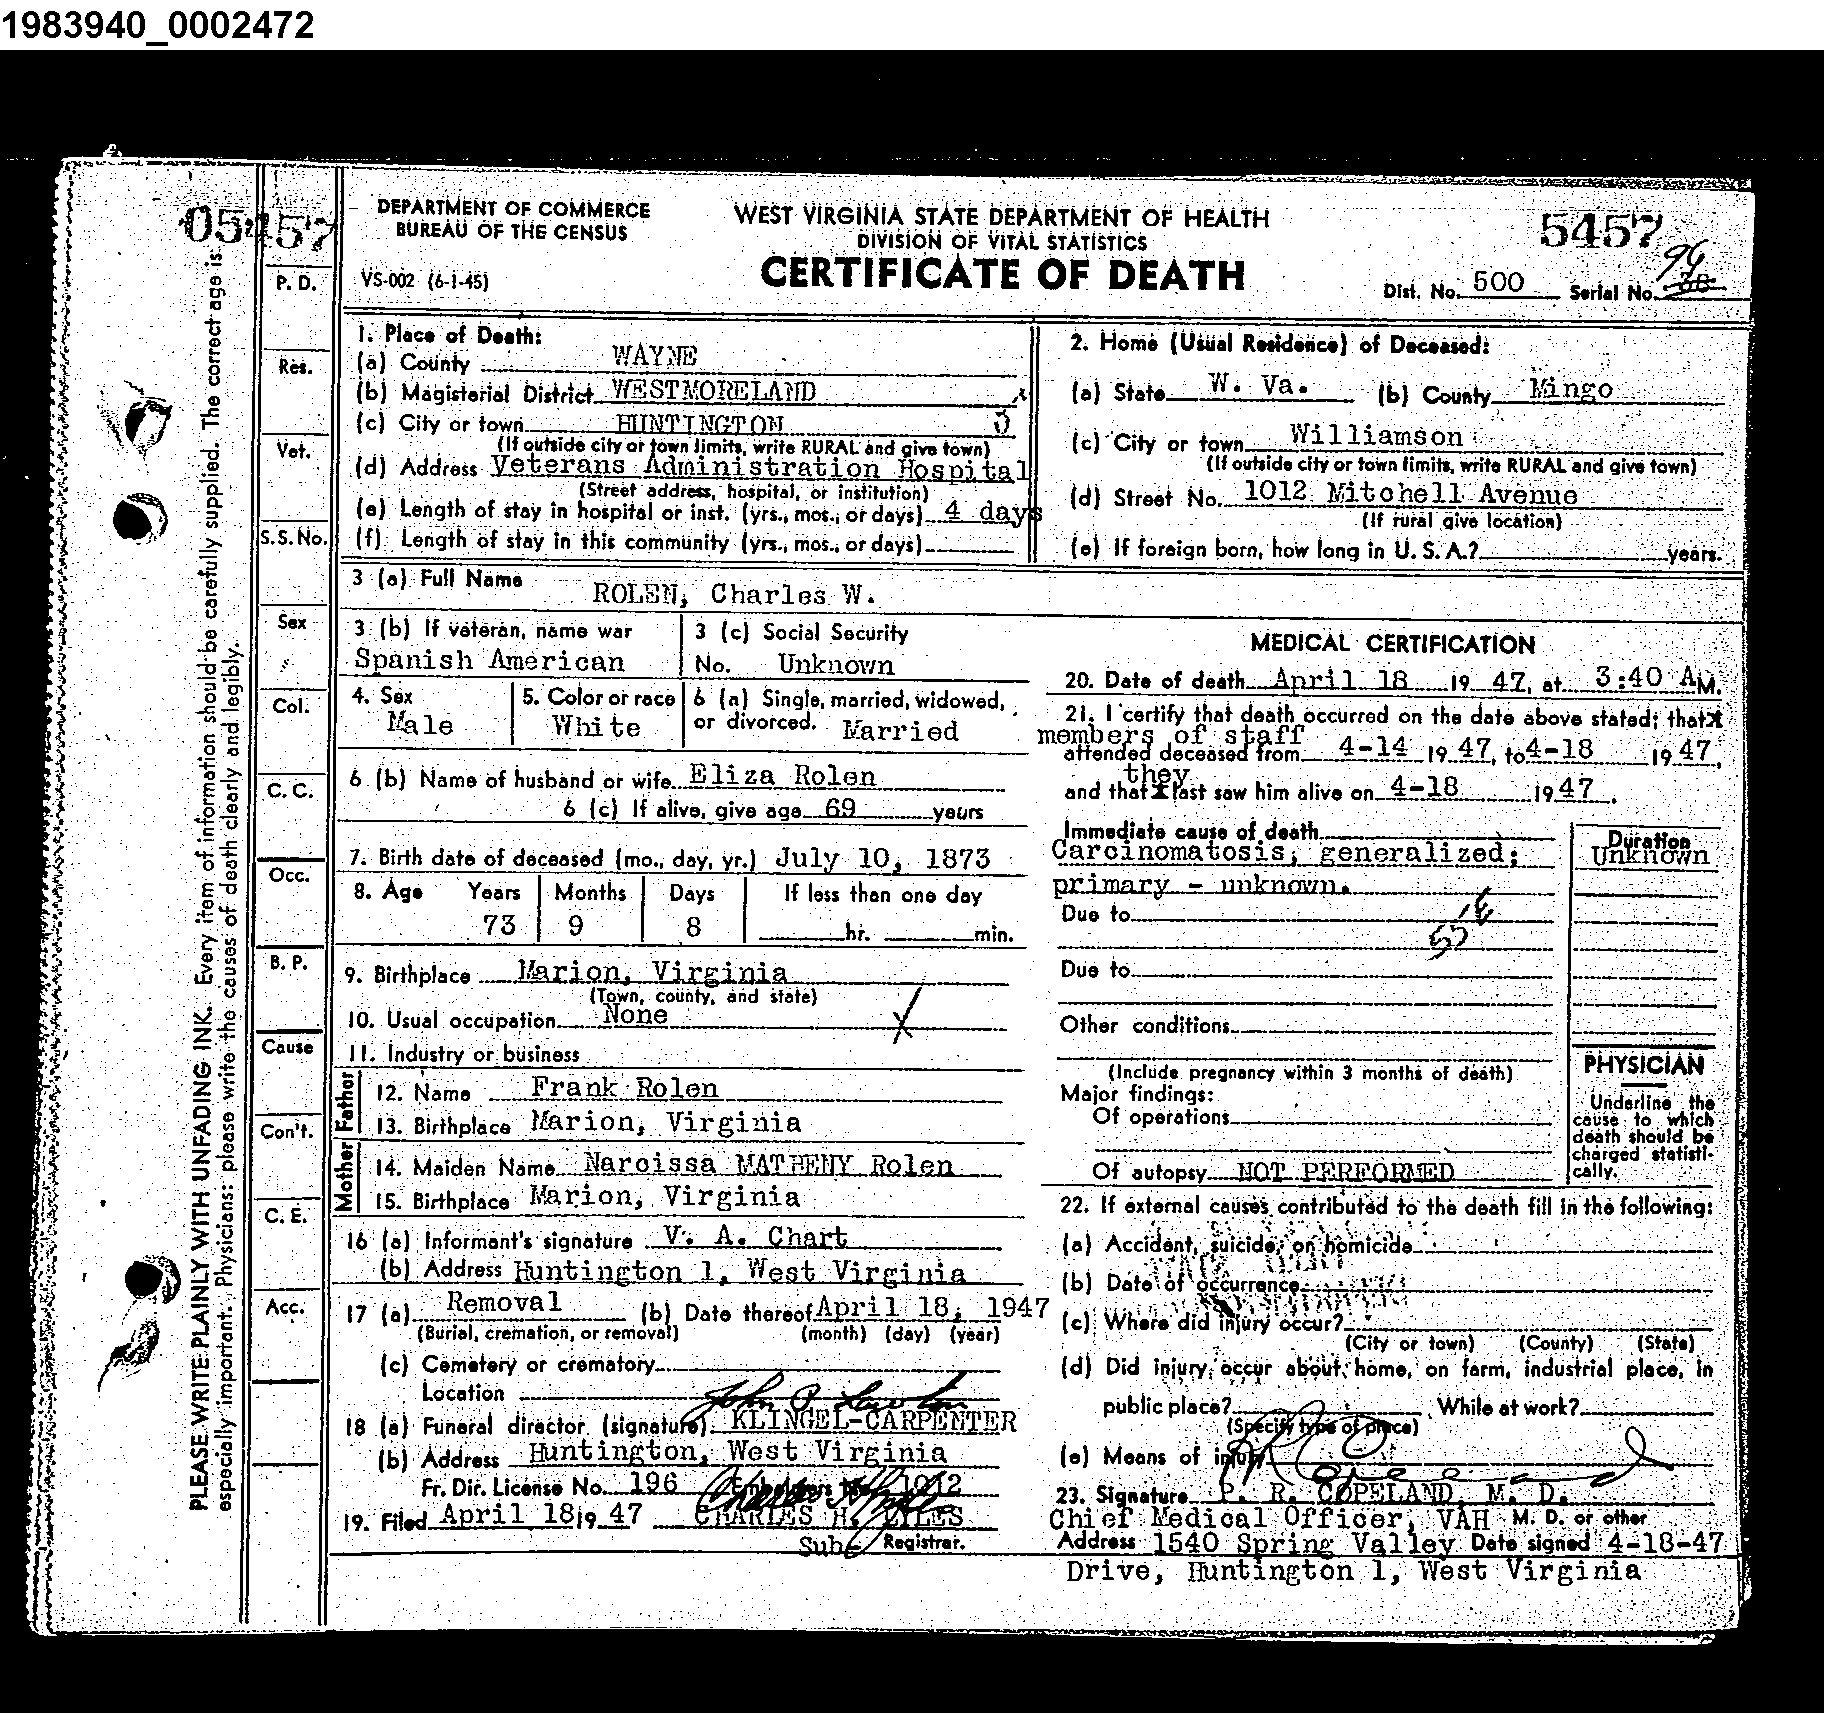 1983940_0002472
05457
5457
DEPARTMENT OF COMMERCE
BUREAU OF THE CENSUS
VS-002 (6-1-45)
WEST VIRGINIA STATE DEPARTMENT OF HEALTH
DIVISION OF VITAL STATISTICS
CERTIFICATE OF DEATH
Dist. No. 500 Serial No. 94
PLEASE WRITE PLAINLY WITH UNFADING INK. Every item of information should be carefully supplied. The correct age is
especially important. Physicians: please write the causes of death clearly and legibly.
P. D.
Res.
Vet.
S.S. No.
Sex
Col.
C. C.
Occ.
B. P.
Cause
Con't.
C. E.
Acc.
1. Place of Death:
(a) County WAYNE
(b) Magisterial District WESTMORELAND
(c) City or town HUNTINGTON
(If outside city or town limits, write RURAL and give town)
(d) Address Veterans Administration Hospital
(Street address, hospital, or institution)
(e) Length of stay in hospital or inst. (yrs., mos., or days) 4 days
(f) Length of stay in this community (yrs., mos., or days)
2. Home (Usual Residence) of Deceased:
(a) State W. Va. (b) County Mingo
(c) City or town Williamson
(If outside city or town limits, write RURAL and give town)
(d) Street No. 1012 Mitchell Avenue
(If rural give location)
(e) If foreign born, how long in U. S. A.? years.
3 (a) Full Name ROLEN, Charles W.
3 (b) If veteran, name war
Spanish American
3 (c) Social Security
No. Unknown
4. Sex
Male
5. Color or race
White
6 (a) Single, married, widowed,
or divorced. Married
6 (b) Name of husband or wife Eliza Rolen
6 (c) If alive, give age 69 years
7. Birth date of deceased (mo., day, yr.) July 10, 1873
8. Age Years Months Days If less than one day
73 9 8 hr. min.
9. Birthplace Marion, Virginia
(Town, county, and state)
10. Usual occupation None X
11. Industry or business
Father
12. Name Frank Rolen
13. Birthplace Marion, Virginia
Mother
14. Maiden Name Narcissa MATHENY Rolen
15. Birthplace Marion, Virginia
16 (a) Informant's signature V. A. Chart
(b) Address Huntington 1, West Virginia
17 (a) Removal (b) Date thereof April 18, 1947
(Burial, cremation, or removal) (month) (day) (year)
(c) Cemetery or crematory
Location
18 (a) Funeral director (signature) KLINGEL-CARPENTER
(b) Address Huntington, West Virginia
Fr. Dir. License No. 196 1012
19. Filed April 18 19 47 CHARLES H. LYLES
Sub Registrar.
MEDICAL CERTIFICATION
20. Date of death April 18 19 47, at 3:40 A M.
21. I certify that death occurred on the date above stated; that
members of staff
attended deceased from 4-14 19 47, to 4-18 19 47,
they
and that I last saw him alive on 4-18 19 47.
Immediate cause of death
Carcinomatosis, generalized;
primary - unknown.
Duration
Unknown
Due to
Due to
Other conditions
(Include pregnancy within 3 months of death)
Major findings:
Of operations
Of autopsy NOT PERFORMED
PHYSICIAN
Underline the
cause to which
death should be
charged statisti-
cally.
22. If external causes contributed to the death fill in the following:
(a) Accident, suicide, or homicide
(b) Date of occurrence
(c) Where did injury occur?
(City or town) (County) (State)
(d) Did injury occur about home, on farm, industrial place, in
public place? While at work?
(Specify type of place)
(e) Means of injury
23. Signature P. R. COPELAND, M. D.
Chief Medical Officer, VAH M. D. or other
Address 1540 Spring Valley Date signed 4-18-47
Drive, Huntington 1, West Virginia